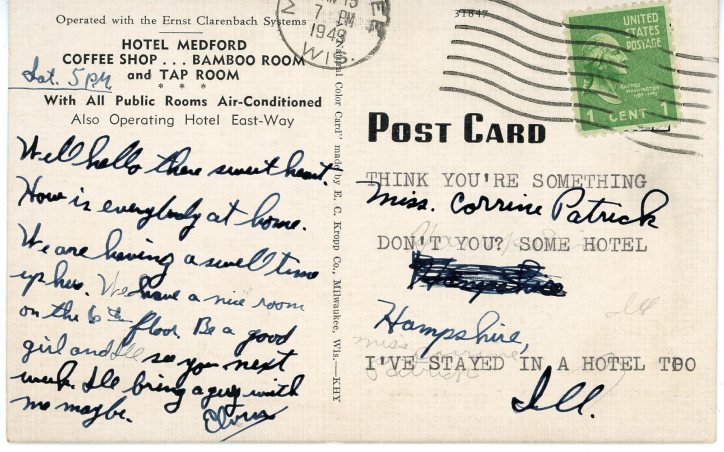 Operated with the Ernst Clarenbach Systems
HOTEL MEDFORD
COFFEE SHOP ... BAMBOO ROOM
and TAP ROOM
* * *
With All Public Rooms Air-Conditioned
Also Operating Hotel East-Way
Sat. 5 PM
Well hello there sweet heart.
How is everybody at home.
We are having a swell time
up here. We have a nice room
on the 6th floor. Be a good
girl and Ill see you next
week. Ill bring a guy with
me maybe.
7 PM
1949
WIS.
Natural Color Card" made by E. C. Kropp Co., Milwaukee, Wis.—KHY
31847
UNITED
STATES
POSTAGE
GEORGE
WASHINGTON
1 CENT 1
POST CARD
THINK YOU'RE SOMETHING
Miss. Corrine Patrick
DON'T YOU? SOME HOTEL
Hampshire
Hampshire,
Ill
Miss Corrine
Patrick
I'VE STAYED IN A HOTEL TOO
Ill.